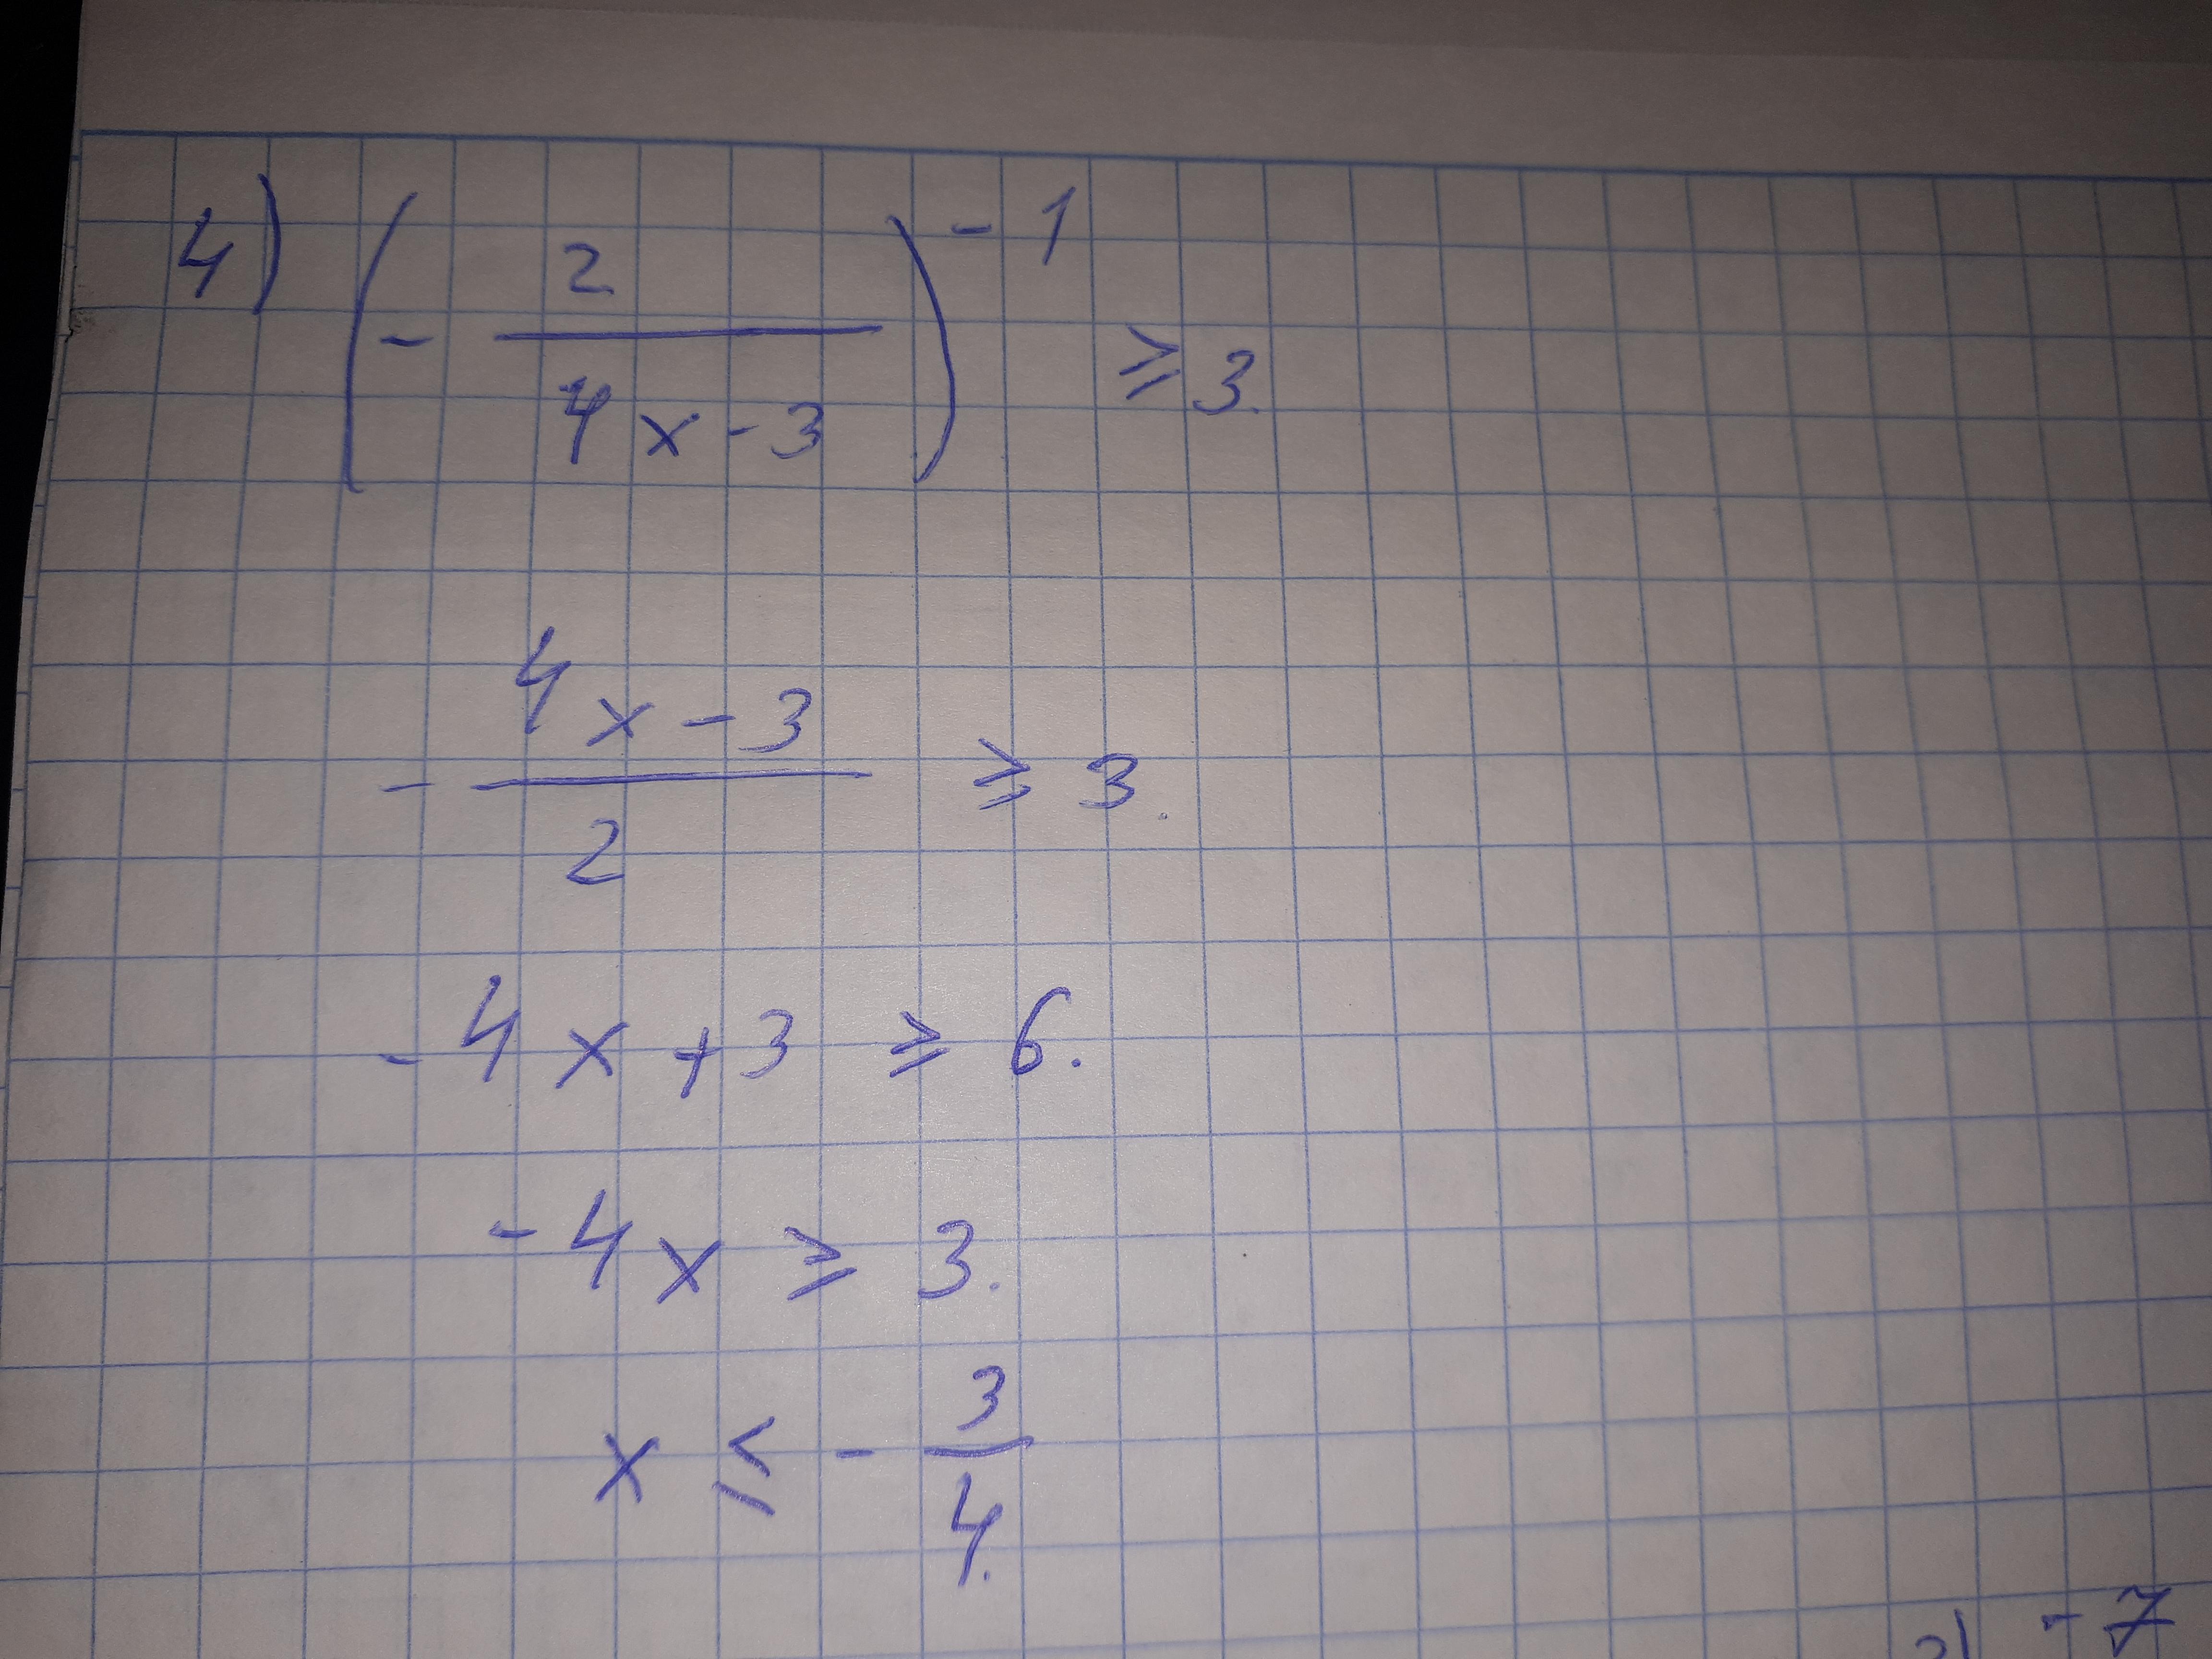 4) (- 2/(4x-3))^-1 ≥ 3.
- (4x-3)/2 ≥ 3.
-4x+3 ≥ 6.
-4x ≥ 3.
x ≤ - 3/4.
- 7